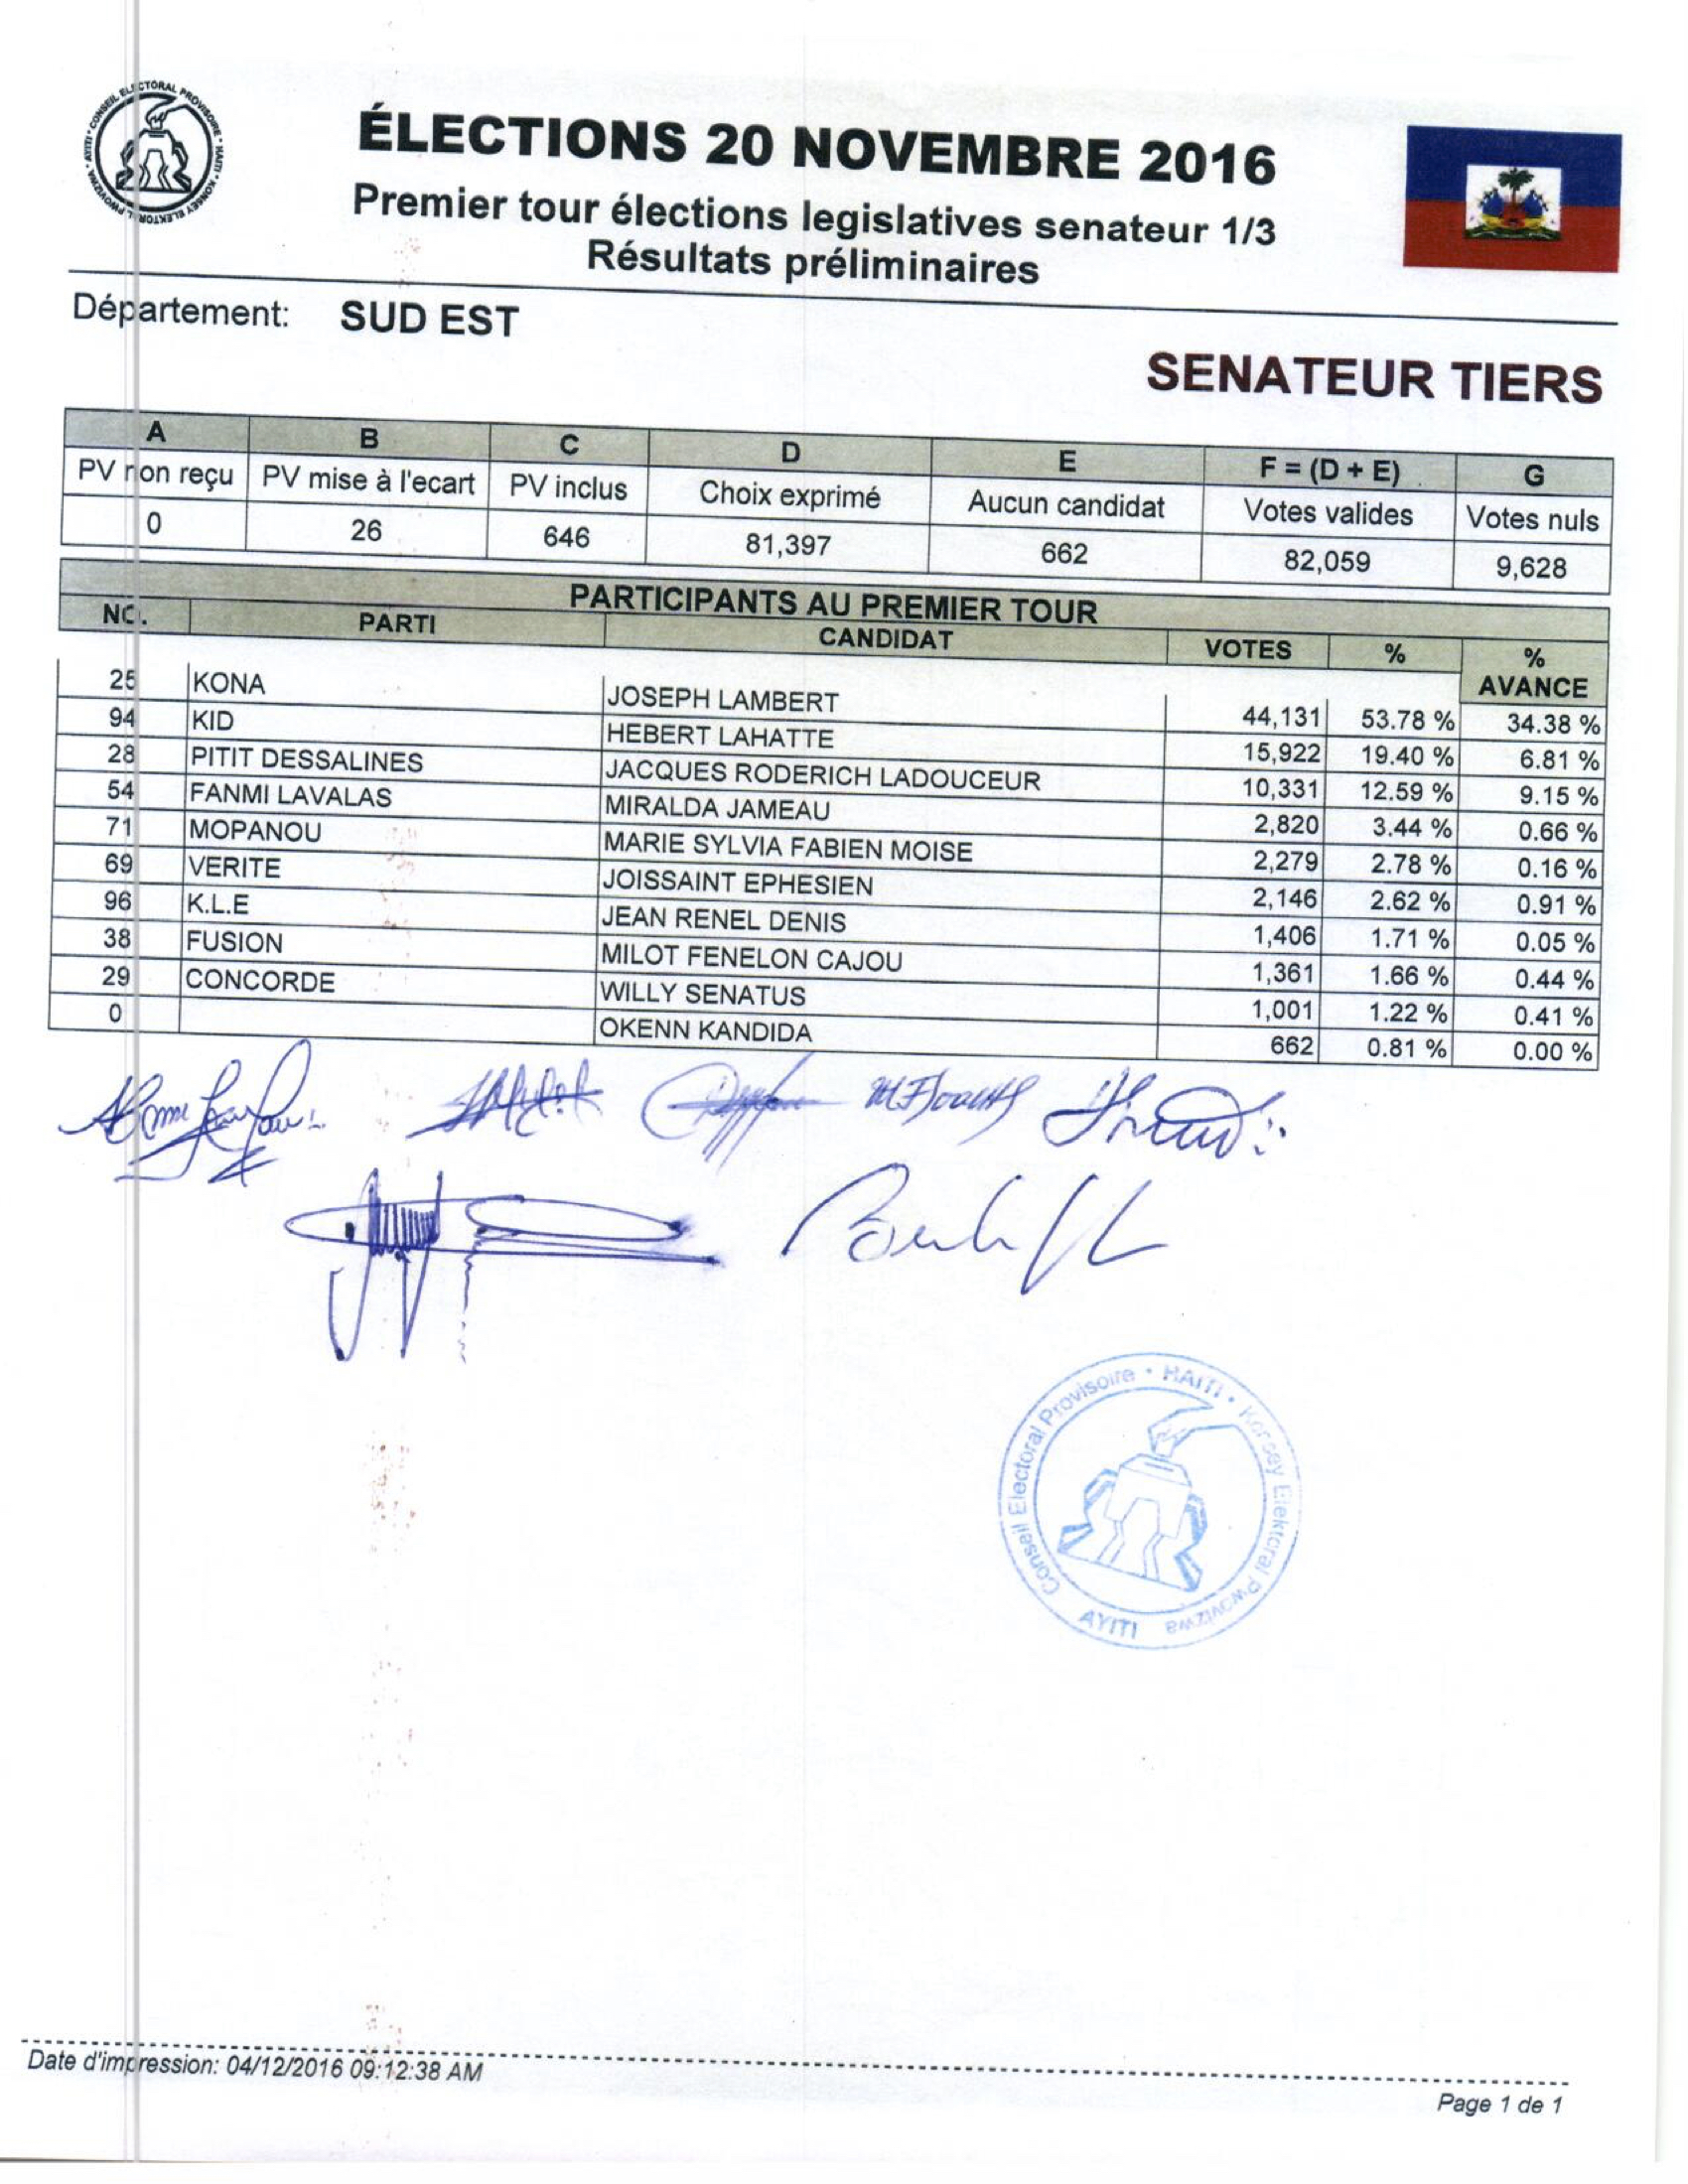 CONSEIL ELECTORAL PROVISOIRE • HAITI • KONSEY ELEKTORAL PWOVIZWA • AYITI •
ÉLECTIONS 20 NOVEMBRE 2016
Premier tour élections legislatives senateur 1/3
Résultats préliminaires
Département: SUD EST
SENATEUR TIERS
A B C D E F = (D + E) G
PV non reçu PV mise à l'ecart PV inclus Choix exprimé Aucun candidat Votes valides Votes nuls
0 26 646 81,397 662 82,059 9,628
PARTICIPANTS AU PREMIER TOUR
NO. PARTI CANDIDAT VOTES % % AVANCE
25 KONA JOSEPH LAMBERT 44,131 53.78 % 34.38 %
94 KID HEBERT LAHATTE 15,922 19.40 % 6.81 %
28 PITIT DESSALINES JACQUES RODERICH LADOUCEUR 10,331 12.59 % 9.15 %
54 FANMI LAVALAS MIRALDA JAMEAU 2,820 3.44 % 0.66 %
71 MOPANOU MARIE SYLVIA FABIEN MOISE 2,279 2.78 % 0.16 %
69 VERITE JOISSAINT EPHESIEN 2,146 2.62 % 0.91 %
96 K.L.E JEAN RENEL DENIS 1,406 1.71 % 0.05 %
38 FUSION MILOT FENELON CAJOU 1,361 1.66 % 0.44 %
29 CONCORDE WILLY SENATUS 1,001 1.22 % 0.41 %
0 OKENN KANDIDA 662 0.81 % 0.00 %
Conseil Electoral Provisoire • HAITI • Konsey Elektoral Pwovizwa AYITI
Date d'impression: 04/12/2016 09:12:38 AM
Page 1 de 1